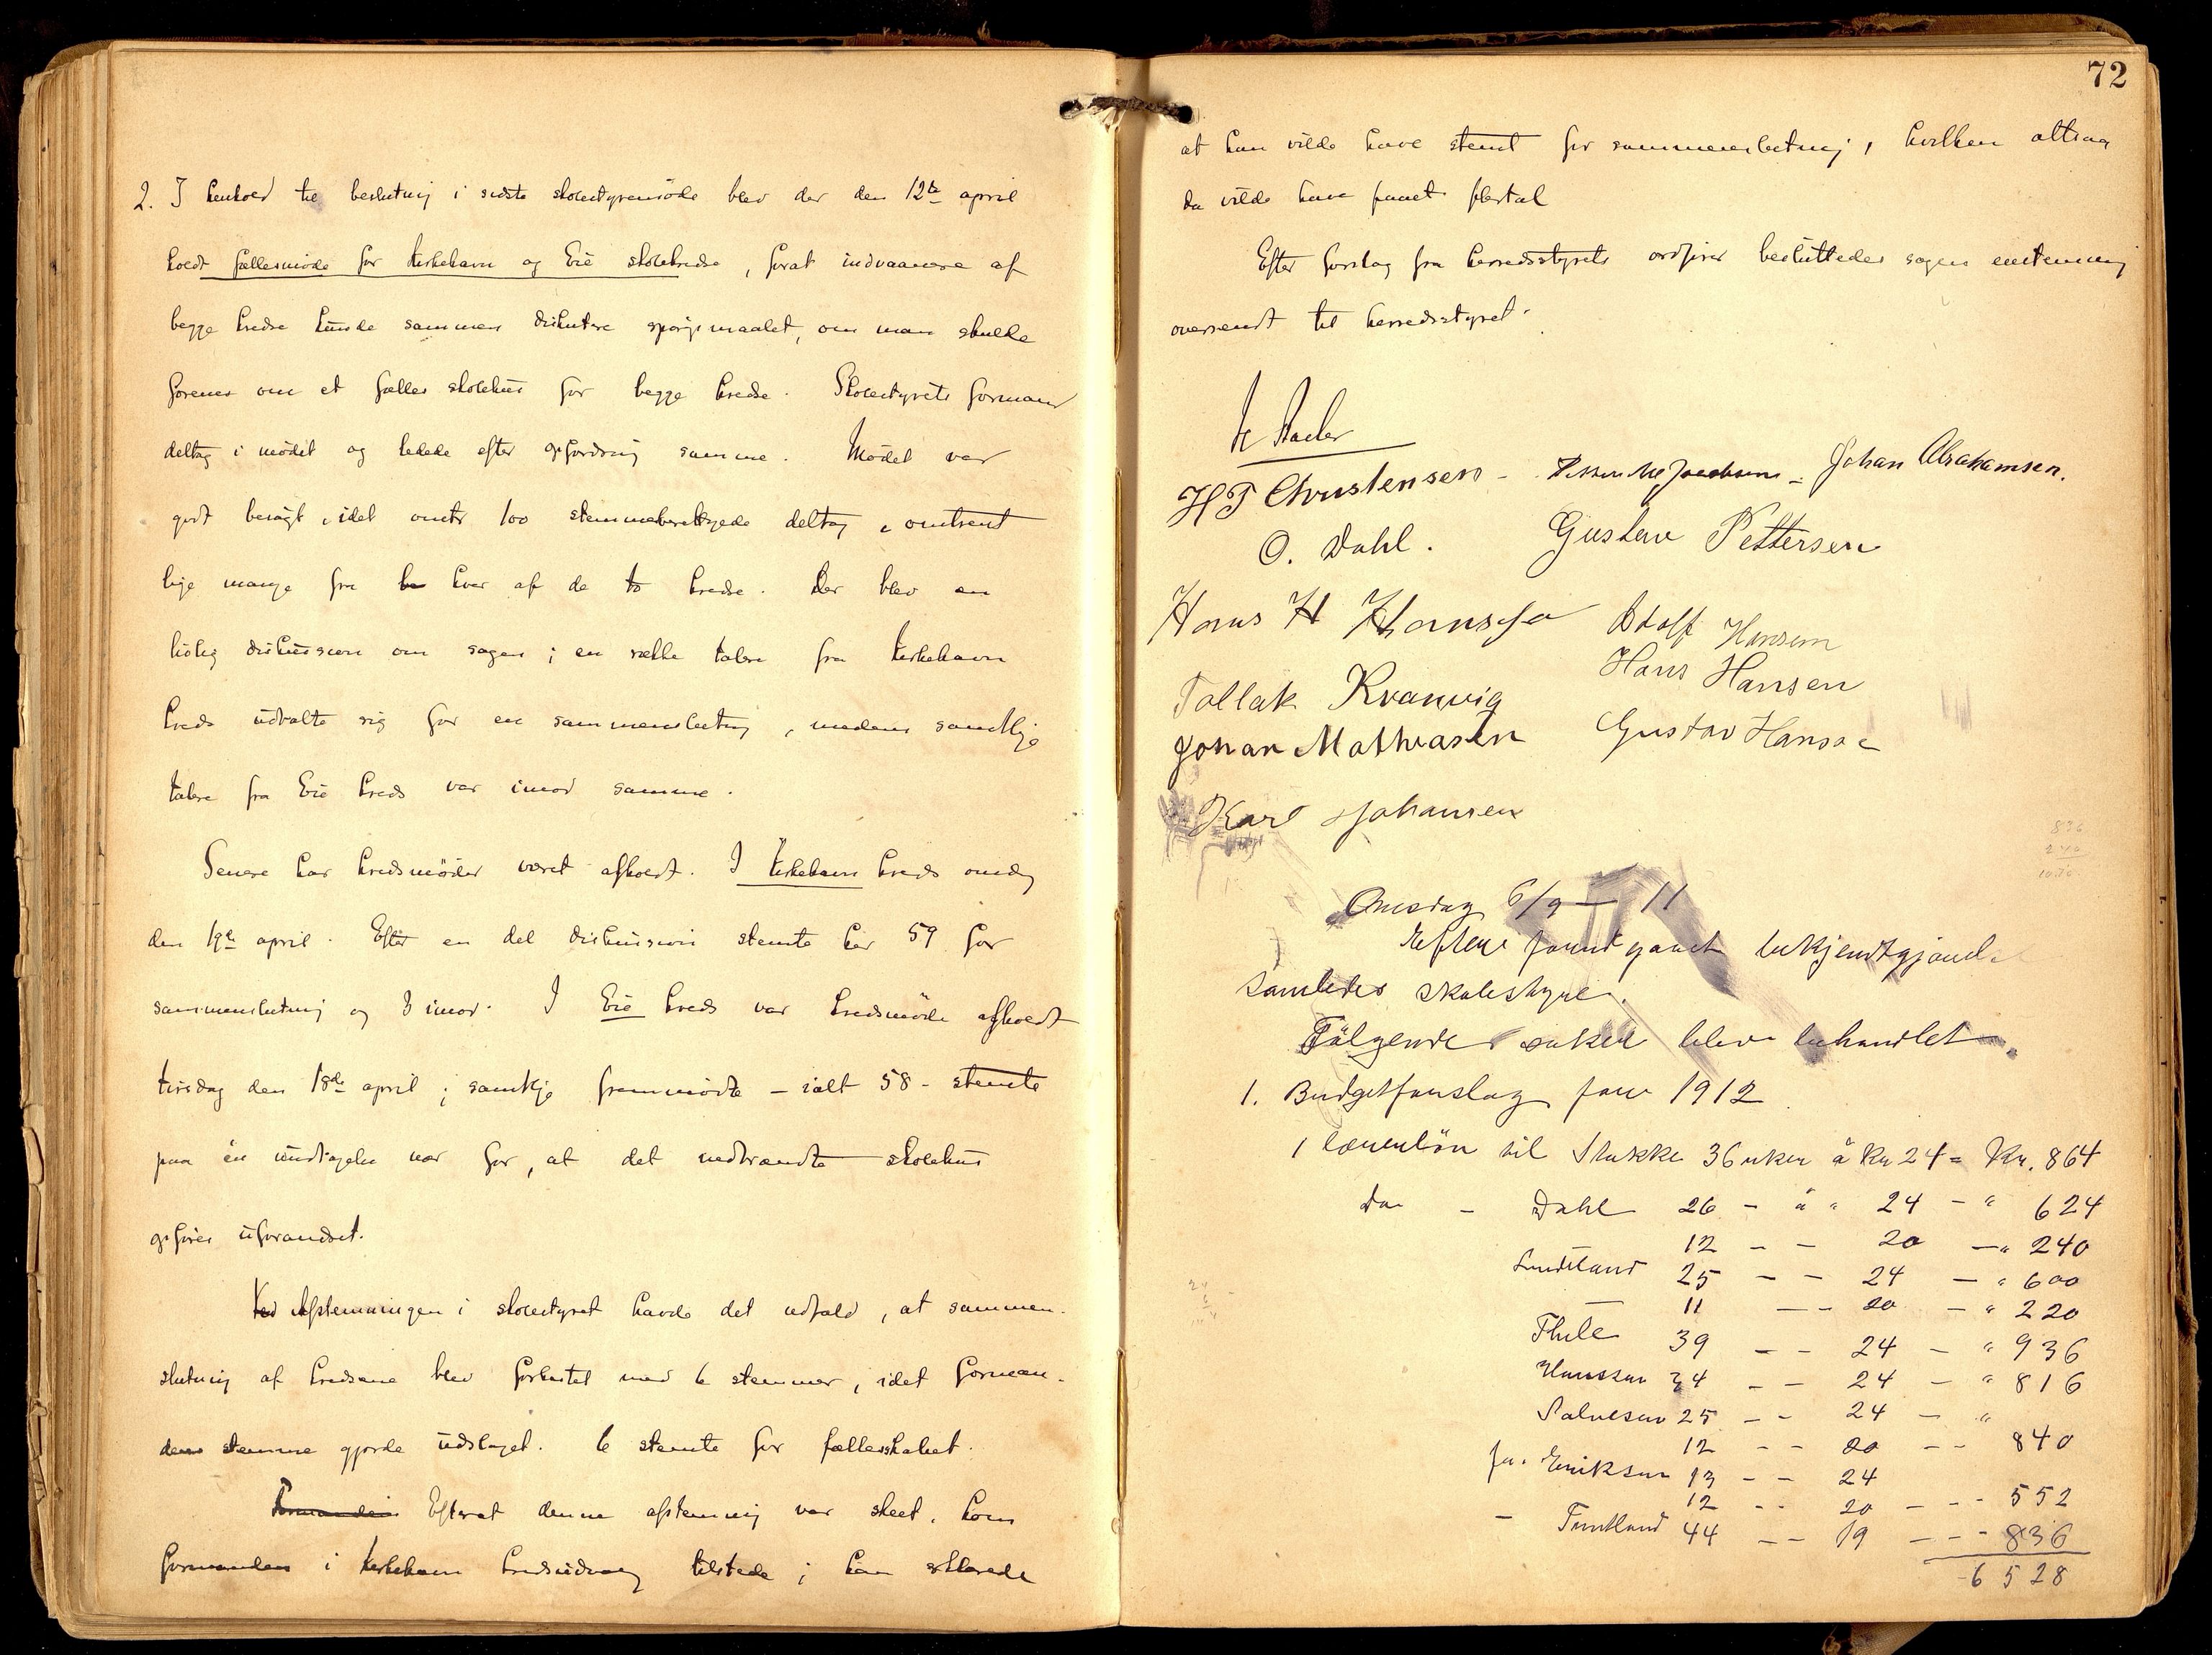 2. I henhold til beslutning i sidste skolestyremöde blev der den 12te april
holdt fællesmöde for Kirkehavn og Eie skolekredse, forat indvaanere af
begge kredse kunde sammen diskutere spörgsmaalet, om man skulde
forenes om et fælles skolehus for begge kredse. Skolestyrets formand
deltog i mödet og ledede efter opfordring samme. Mödet var
godt besögt, idet omtr 100 stemmeberettigede deltog, omtrent
lige mange fra hver af de to kredse. Der blev en
livlig diskussion om sagen; en række talere fra Kirkehavn
kreds udtalte sig for en sammenslutning, medens samtlige
talere fra Eie kreds var imod samme.
Senere har kredsmöder været afholdt. I Kirkehavn kreds onsdag
den 19de april. Efter en del diskussion stemte her 59 for
sammenslutning og 3 imod. I Eie kreds var kredsmöde afholdt
tirsdag den 18de april; samtlige fremmödte - ialt 58 - stemte
paa én undtagelse nær for, at det nedbrændte skolehus
opföres uforandret.
Ved Afstemningen i skolestyret havde det udfald, at sammen-
slutning af kredsene blev forkastet med 6 stemmer, idet forman-
dens stemme gjorde udslaget. 6 stemte for fællesskabet.
Formanden Efterat denne afstemning var skeet, kom
formanden i Kirkehavn kredsudvalg tilstede; han erklærede
72
at han vilde have stemt for sammenslutning, hvilken altsaa
da vilde have faaet flertal
Efter forslag fra herredsstyrets ordförer besluttedes sagen enstemmig
oversendt til herredsstyret.
H T Christensen - Jacobsen - Johan Abrahamsen.
O. Dahl. Gustav Pettersen
Hans H Hansen Adolf Hansen
Hans Hansen
Tollak Kvanvig
Johan Mathiasen Gustav Hansen
Karl Johansen
836
240
Onsdag 6/9 - 11
Efter forutgaaet bekjendtgjörelse
samledes skolestyret.
Fölgende saker blev behandlet.
1. Budgetforslag for 1912
1 lærerlön til Stakke 36 uker à Kr 24 = Kr. 864
do - Dahl 26 - à " 24 - " 624
12 - - 20 - " 240
Sundland 25 - - 24 - " 600
11 - - 20 - " 220
Thele 39 - - 24 - " 936
Hanssen 34 - - 24 - " 816
Salvesen 25 - - 24 - "
12 - - 20 - - 840
fr. Eriksen 13 - - 24
12 - - 20 - - - 552
- Tuntland 44 - - 19 - - - 836
6528